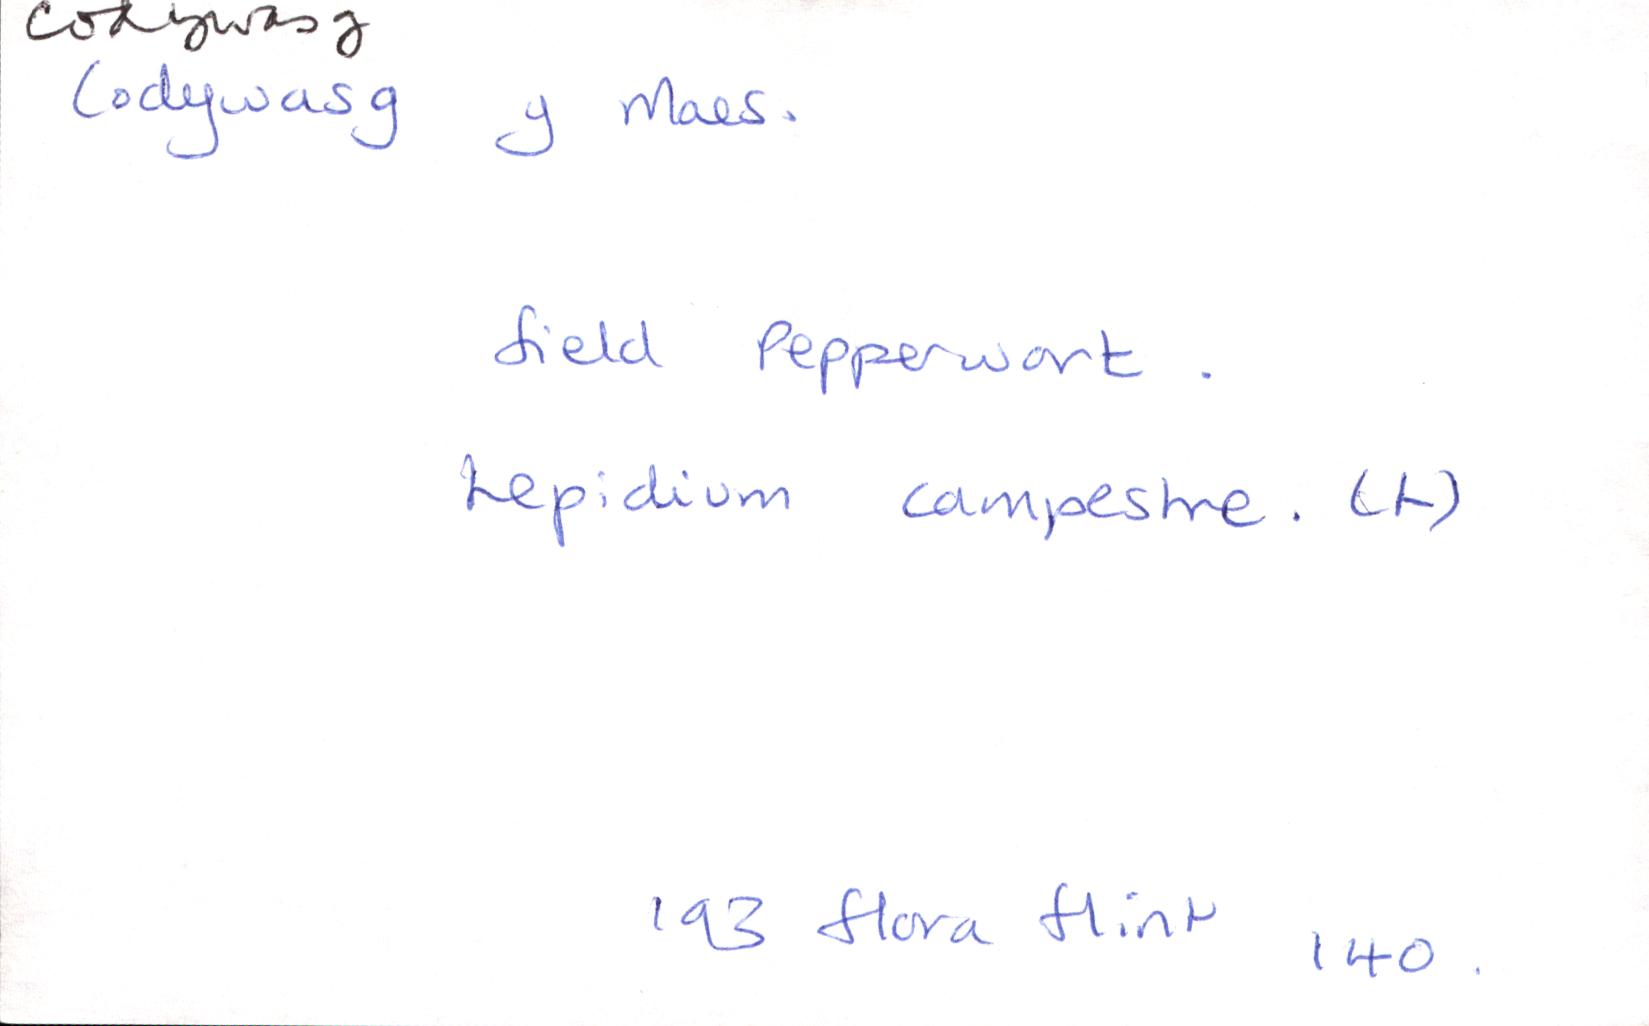 Codywasg
Codywasg y Maes.
field Pepperwort.
Lepidium campestre. (L)
193 flora flint 140.